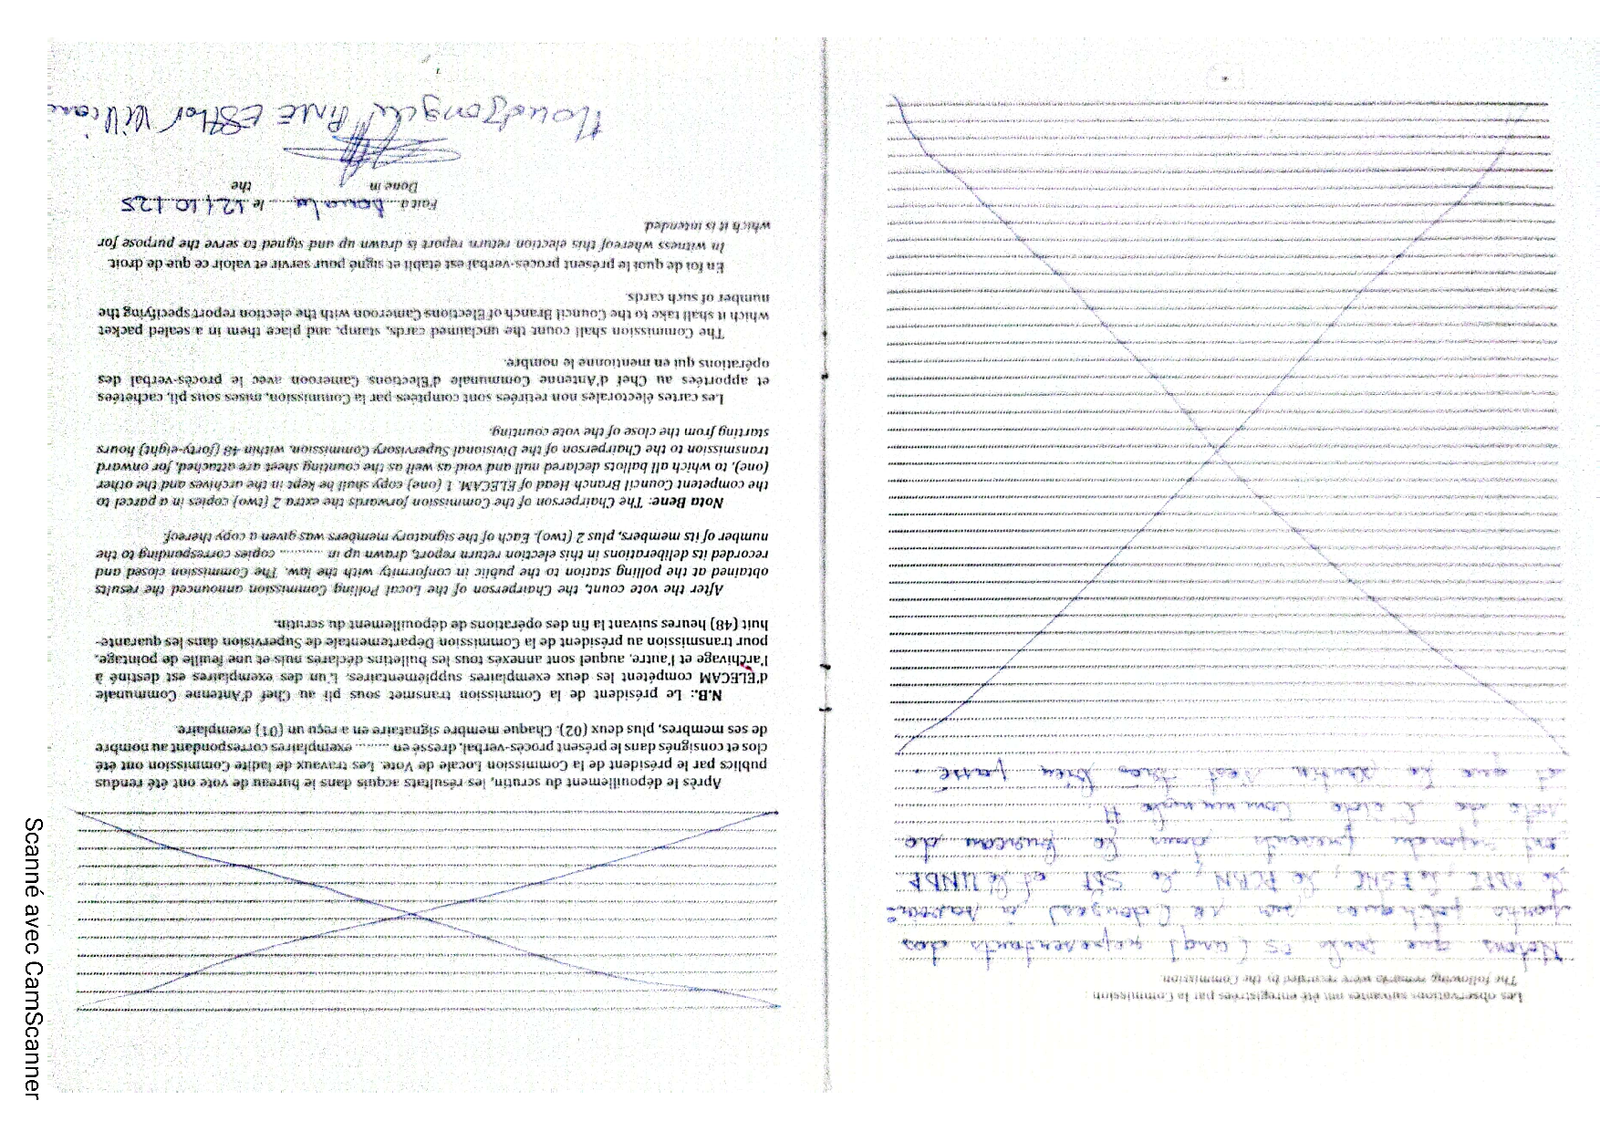 Les observations suivantes ont été enregistrées par la Commission :
The following remarks were recorded by the Commission
Notons que seuls 05 (cinq) représentants des
partis politiques sur 12 (douze) à savoir
le RDPC, le FSNC, le PCRN, le SDF et l'UNDP
ont répondu présents dans le bureau de
vote de l'école communale H
et que le scrutin s'est très bien passé.
Après le dépouillement du scrutin, les résultats acquis dans le bureau de vote ont été rendus
publics par le président de la Commission Locale de Vote. Les travaux de ladite Commission ont été
clos et consignés dans le présent procès-verbal, dressé en ......... exemplaires correspondant au nombre
de ses membres, plus deux (02). Chaque membre signataire en a reçu un (01) exemplaire.
N.B.: Le président de la Commission transmet sous pli au Chef d'Antenne Communale
d'ELECAM compétent les deux exemplaires supplémentaires. L'un des exemplaires est destiné à
l'archivage et l'autre, auquel sont annexés tous les bulletins déclarés nuls et une feuille de pointage,
pour transmission au président de la Commission Départementale de Supervision dans les quarante-
huit (48) heures suivant la fin des opérations de dépouillement du scrutin.
After the vote count, the Chairperson of the Local Polling Commission announced the results
obtained at the polling station to the public in conformity with the law. The Commission closed and
recorded its deliberations in this election return report, drawn up in ........... copies corresponding to the
number of its members, plus 2 (two). Each of the signatory members was given a copy thereof.
Nota Bene: The Chairperson of the Commission forwards the extra 2 (two) copies in a parcel to
the competent Council Branch Head of ELECAM. 1 (one) copy shall be kept in the archives and the other
(one), to which all ballots declared null and void as well as the counting sheet are attached, for onward
transmission to the Chairperson of the Divisional Supervisory Commission, within 48 (forty-eight) hours
starting from the close of the vote counting.
Les cartes électorales non retirées sont comptées par la Commission, mises sous pli, cachetées
et apportées au Chef d'Antenne Communale d'Elections Cameroon avec le procès-verbal des
opérations qui en mentionne le nombre.
The Commission shall count the unclaimed cards, stamp, and place them in a sealed packet
which it shall take to the Council Branch of Elections Cameroon with the election report specifying the
number of such cards.
En foi de quoi le présent procès-verbal est établi et signé pour servir et valoir ce que de droit.
In witness whereof this election return report is drawn up and signed to serve the purpose for
which it is intended.
Fait à Douala le 12/10/25
Done in the
ESther
Scanné avec CamScanner